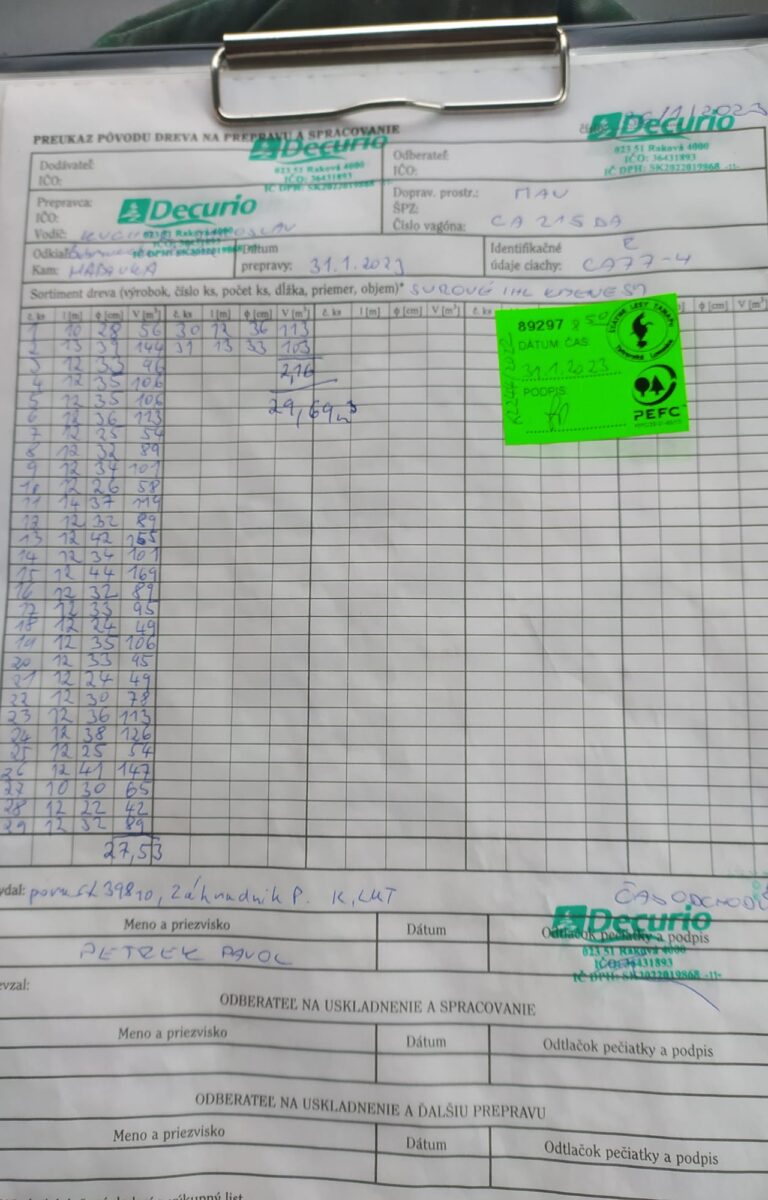 PREUKAZ PÔVODU DREVA NA PREPRAVU A SPRACOVANIE
Decurio
023 51 Raková 4000
IČO: 36431893
IČ DPH: SK2022019868 -11-
Decurio
023 51 Raková 4000
IČO: 36431893
IČ DPH: SK2022019868 -11-
Dodávateľ:
IČO:
Odberateľ:
IČO:
Prepravca:
IČO:
Vodič:
Decurio
Raková 4000
IČO: 36431893
IČ DPH: SK2022019868
Doprav. prostr.: MAN
ŠPZ:
Číslo vagóna: CA 215 DA
Odkiaľ:
Kam:
Dátum
prepravy: 31.1.2023
Identifikačné
údaje ciachy: CA77-4
Sortiment dreva (výrobok, číslo ks, počet ks, dĺžka, priemer, objem)* SUROVÉ IHL KMENE
č. ks l [m] φ [cm] V [m³] č. ks l [m] φ [cm] V [m³] č. ks l [m] φ [cm] V [m³] č. ks l [m] φ [cm] V [m³]
1 10 28 56 30 12 36 113
2 13 39 144 31 13 33 103
3 12 33 96 2,16
4 12 35 106
5 12 35 106 29,69 m³
6 12 36 113
7 12 25 54
8 12 32 89
9 12 34 101
10 12 26 58
11 14 37 144
12 12 32 89
13 12 42 155
14 12 34 101
15 12 44 169
16 12 32 89
17 12 33 95
18 12 24 49
19 12 35 106
20 12 33 95
21 12 24 49
22 12 30 78
23 12 36 113
24 12 38 126
25 12 25 54
26 12 41 147
27 10 30 65
28 12 22 42
29 12 32 89
27,53
89297 8 50
DÁTUM ČAS
31.1.2023
PODPIS
ŠTÁTNE LESY TANAPU
Tatranská Lomnica
PEFC
ydal: 39810, Záhradník P.
ČAS ODCHODU
Meno a priezvisko Dátum Odtlačok pečiatky a podpis
PETREK PAVOL
Decurio
023 51 Raková 4000
IČO: 36431893
IČ DPH: SK2022019868 -11-
evzal:
ODBERATEĽ NA USKLADNENIE A SPRACOVANIE
Meno a priezvisko Dátum Odtlačok pečiatky a podpis
ODBERATEĽ NA USKLADNENIE A ĎALŠIU PREPRAVU
Meno a priezvisko Dátum Odtlačok pečiatky a podpis